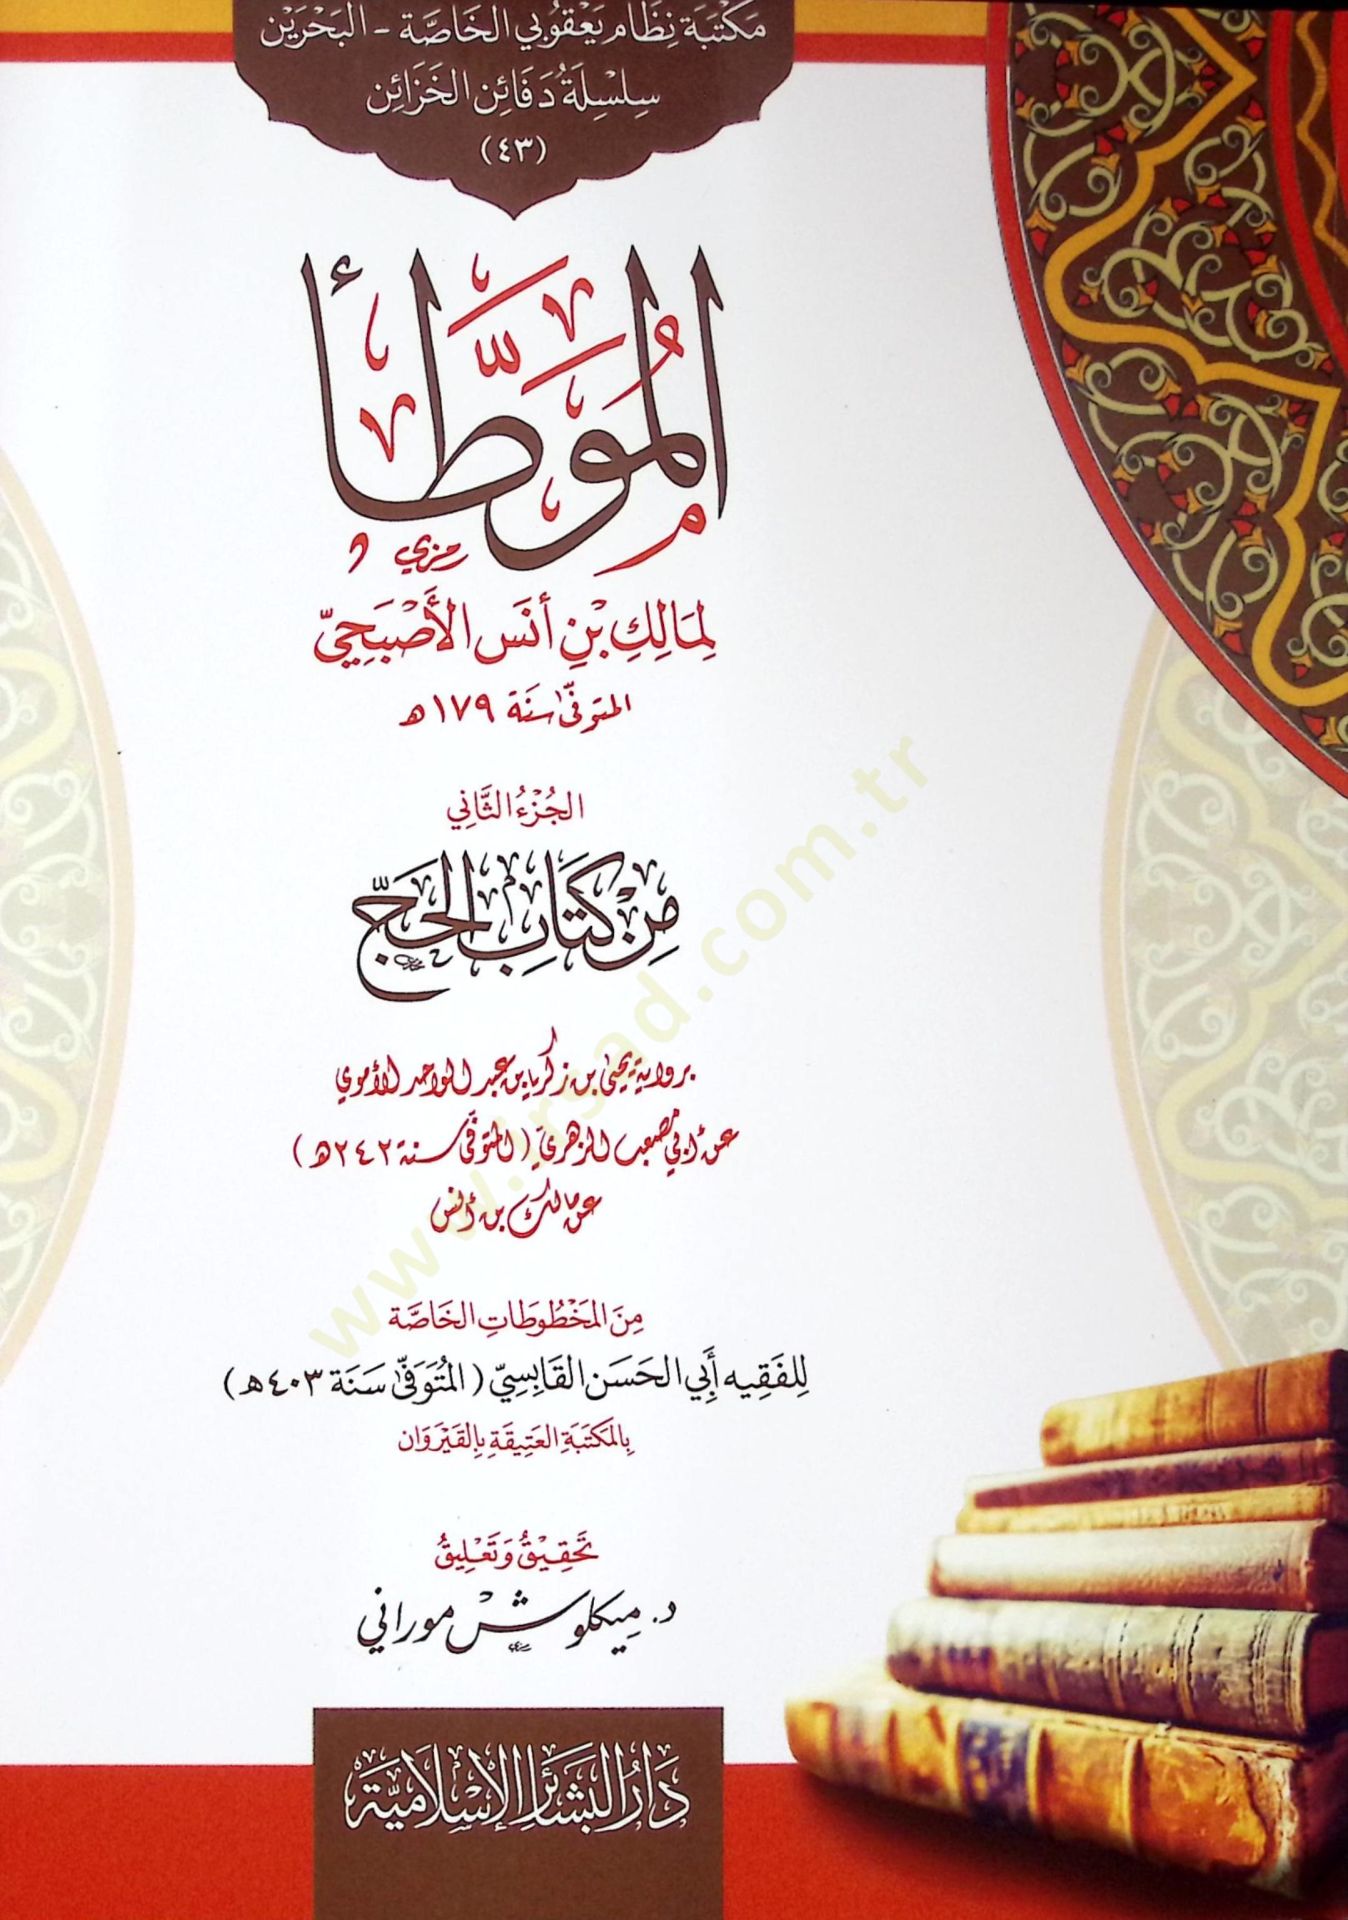 مَكْتَبَة نِظَام يَعْقُوبِي الخَاصَّة - البَحْرَيْن
سِلْسِلَةُ دَفَائِن الخَزَائِن
(٤٣)
المُوَطَّأ
لِمَالِكِ بْنِ أَنَس الأَصْبَحِيّ
المتوفّى سَنَة ١٧٩ هـ
الجُزْءُ الثَّانِي
مِنْ كِتَابِ الحَجّ
برواية يحيى بن زكريا بن عبد الواحد الأموي
عن أبي مصعب الزهري (المتوفى سنة ٢٤٢ هـ)
عن مالك بن أنس
مِنَ المَخْطُوطَاتِ الخَاصَّة
لِلفَقِيه أَبِي الحَسَن القَابِسِيّ (المُتَوَفَّى سَنَة ٤٠٣ هـ)
بِالمَكْتَبَةِ العَتِيقَةِ بِالقَيْرَوَان
تَحْقِيقُ وَتَعْلِيقُ
د. مِيكلُوش مورَاني
دَارُ البَشَائِرِ الإِسْلَامِيَّة
www.irsad.com.tr